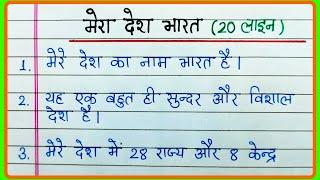 मेरा देश भारत (20 लाइन)
1. मेरे देश का नाम भारत है।
2. यह एक बहुत ही सुन्दर और विशाल
देश है।
3. मेरे देश में 28 राज्य और 8 केन्द्र